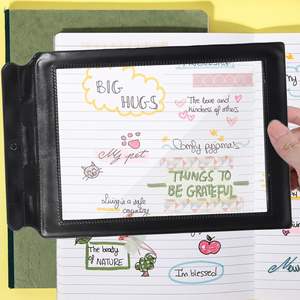 BIG
HUGS
The love and
kindness of others
My pet
Comfy pyjamas
THINGS TO
BE GRATEFUL
Living in a safe
country
The beauty
of NATURE
I'm blessed